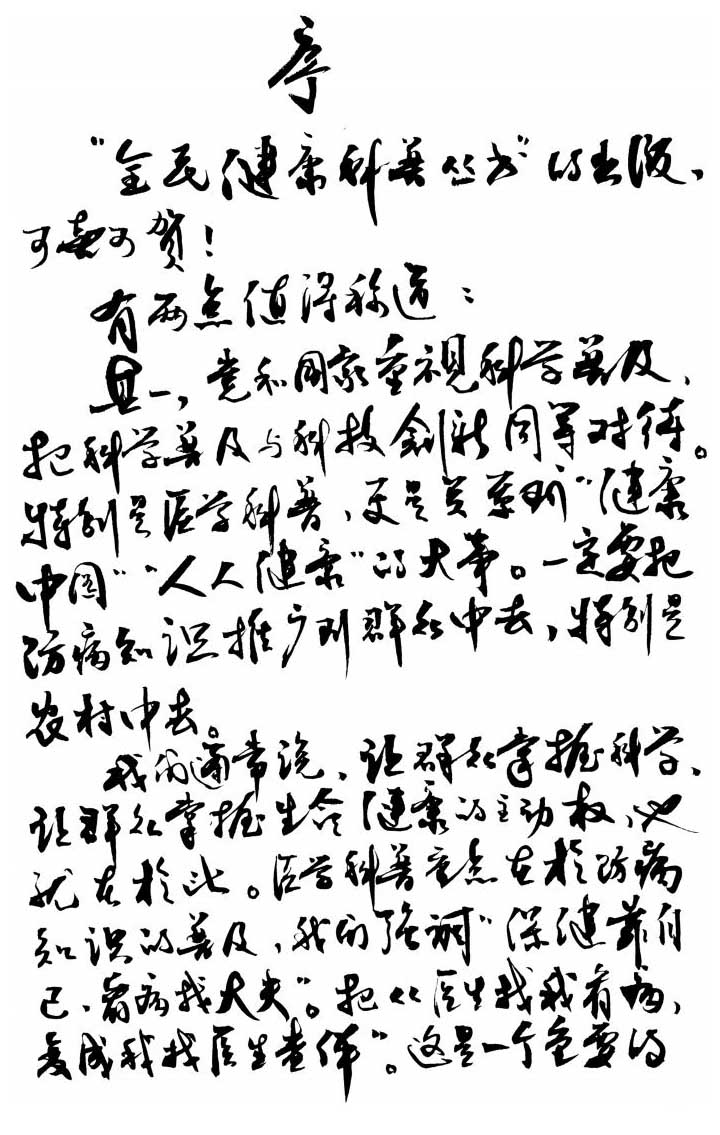 序
“全民健康科普丛书”的出版，
可喜可贺！
有两点值得称道：
其一，党和国家重视科学普及、
把科学普及与科技创新同等对待。
特别是医学科普，更是关系到“健康
中国”“人人健康”的大事。一定要把
防病知识推广到群众中去，特别是
农村中去。
我们通常说，让群众掌握科学、
让群众掌握生命健康的主动权，也
就在于此。医学科普重点在于防病
知识的普及，我们强调“保健靠自
己、看病找大夫”。把“医生找我看病，
变成我找医生查体”。这是一个重要的